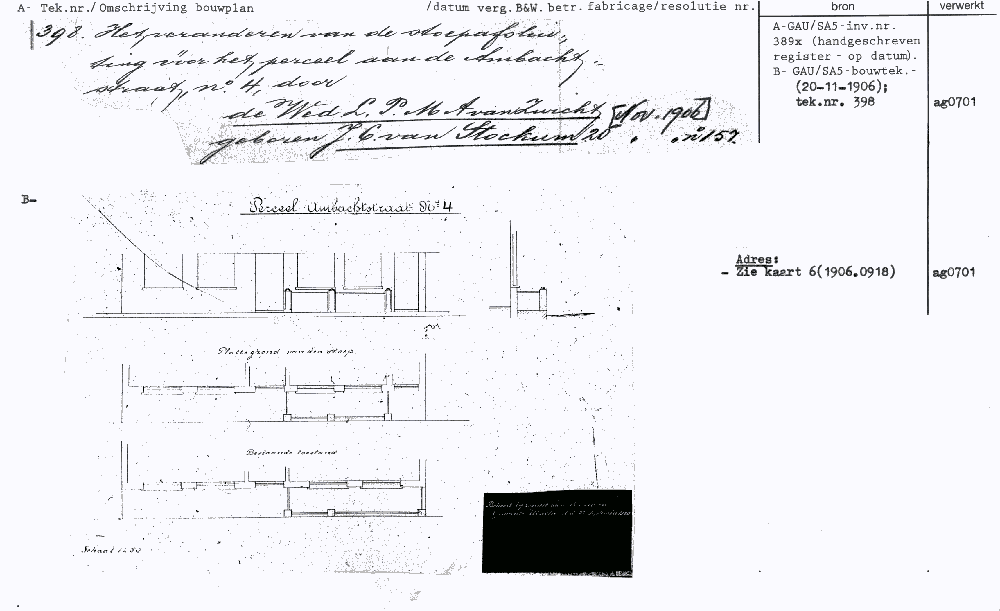 A- Tek.nr./Omschrijving bouwplan /datum verg.B&W. betr. fabricage/resolutie nr. bron verwerkt
398. Het veranderen van de stoepafslui-
ting vóór het perceel aan de Ambacht-
straat, no. 4, door
de Wed. L. P. M. A. van Zwicht [Nov. 1906]
geboren J. C. van Stockum 20 . . no 157.
A-GAU/SA5-inv.nr.
389x (handgeschreven
register - op datum).
B- GAU/SA5-bouwtek.-
(20-11-1906);
tek.nr. 398 ag0701
B-
Perceel Ambachtstraat No 4
Adres:
- Zie kaart 6(1906.0918) ag0701
Plattegrond van den stoep
Bestaande toestand
Schaal 1 à 50